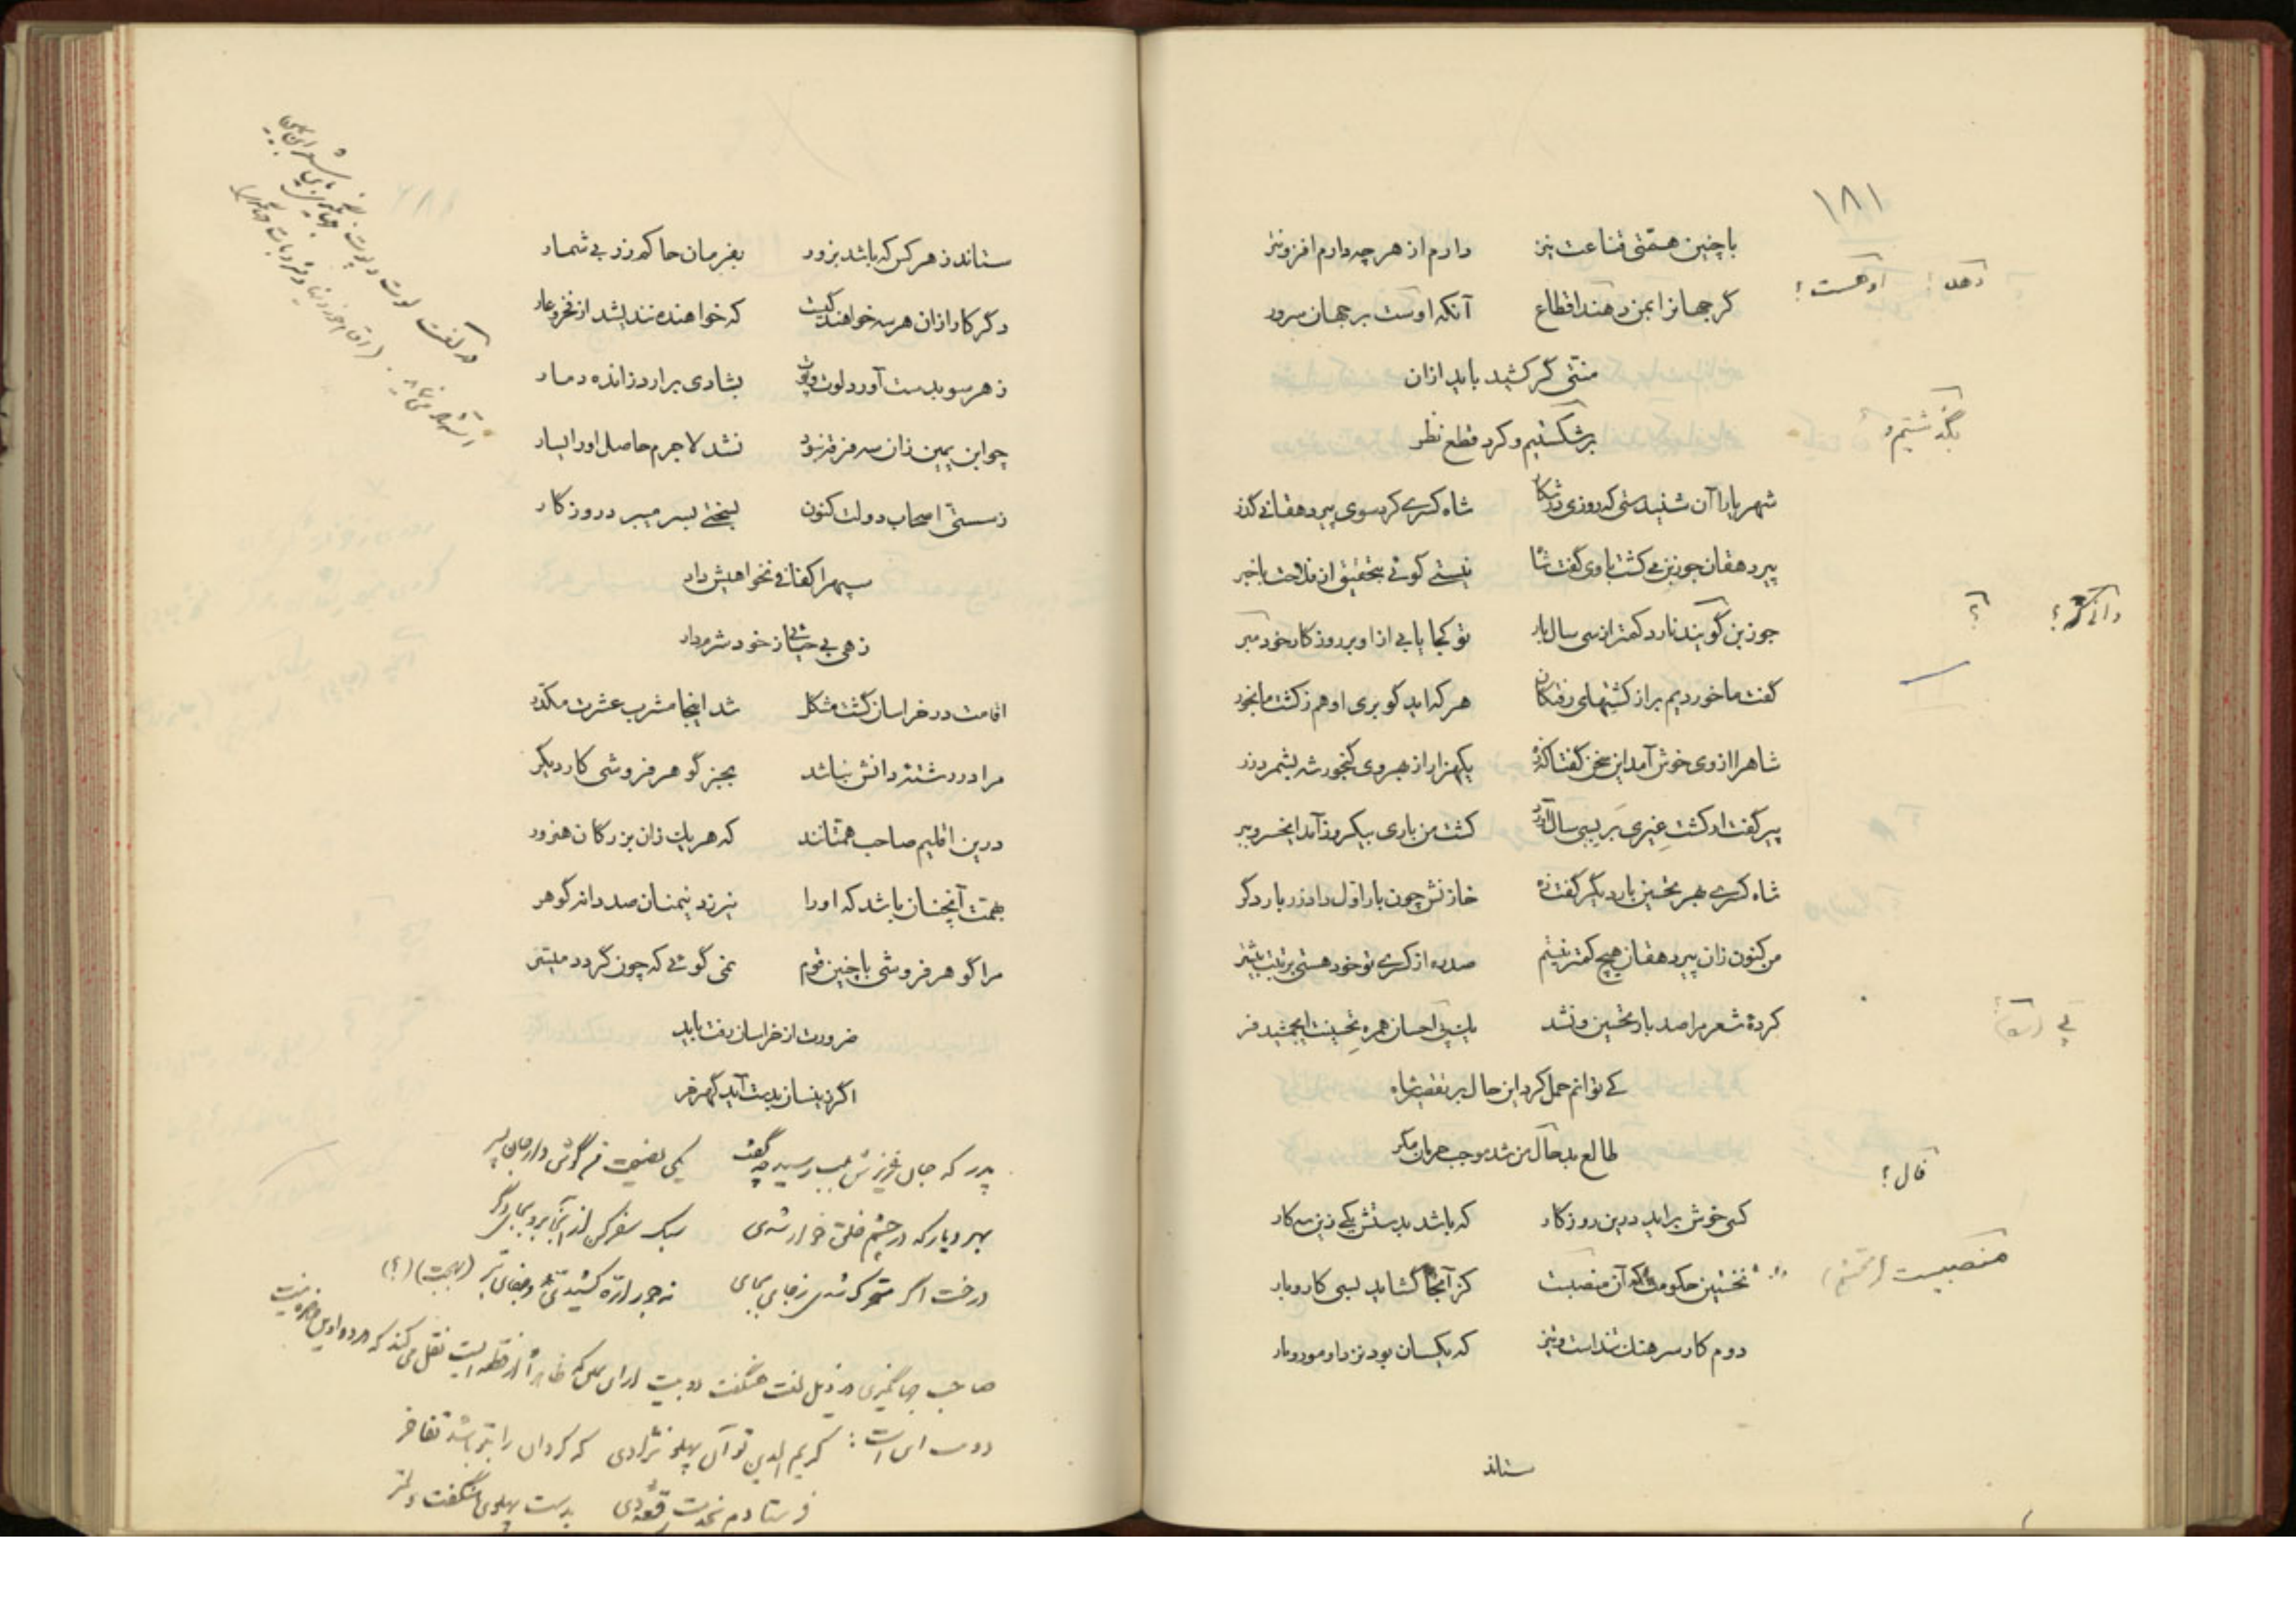 ۱۸۱
با چنین همّتی قناعت نیز دارم از هر چه دارم افزونتر
دهد؛ او هست؟
گر جهانرا بمن دهند اقطاع آنکه او ست بر جهان سرور
منتی گر کشید باید ازان
بگذشتیم و
برشکستیم و کرد قطع نظر
شهریارا آن شنیدستی که روزی در شکار شاه کسری کرد سوی پیر دهقانی گذر
پیر دهقان جوز بن می کشت با وی گفت شاه نیستی گوئی بتحقیق از فلاحت با خبر
جوز بن گویند نارد کمتر از سی سال بار تو کجا یابی ازو بر روزگار خود مبر
گفت ما خوردیم بر از کشتهای رفتگان هر که اید گو بری او هم ز کشت ما بخور
شاهرا از وی خوش آمد این سخن گفتا که زه یکهزار از بهر وی گنجور شه بشمرد زر
پیر گفت ار کشت غیری بر بسی سال آورد کشت من باری بیکروز آمد ایخسرو ببر
شاه کسری بهر تحسین بار دیگر گفت زه خازنش چون بار اوّل داد زر بار دگر
من کنون زان پیر دهقان هیچ کمتر نیستم صد ره از کسری تو خود هستی برتبت بیشتر
کردهٔ شعر مرا صد بار تحسین و نشد یک احسان همره تحسینت ایجمشید فر
کی توانم حمل کرد این حال بر تقصیر شاه
فال؟
طالع بد حال من شد موجب حرمان مگر
کسی خوش براید درین روزگار که باشد بدستش یکی زین سه کار
منصبیست
نخستین حکومت که آن منصبست کز آنجا گشاید بسی کار و بار
دوم کار سرهنگ تند است و تیز که یکسان بود نزد او مور و مار
ستاند
ستاند ز هر کس که باشد بزور بفرمان حاکم زر بی شمار
دگر کار ازان هر سه خواهند گیست که خواهنده نندیشد از فخر و عار
ز هر سو بدست آورد لوت و پوت بشادی برارد ز انده دمار
چو ابن یمین زان سه فرقه نبود نشد لا جرم حاصل او را یسار
ز سستی اصحاب دولت کنون بسختی بسر میبرد روزگار
سپهرا کفافی نخواهیش داد
زهی بی حیائی ز خود شرم دار
اقامت در خراسان گشت مشکل شد اینجا مشرب عشرت مکدّر
مرا در رشتهٔ دانش نباشد بجز گوهر فروشی کار دیگر
درین اقلیم صاحب همّتانند که هر یک زان بزرگان هنرور
بهمت آنچنان باشد که او را نیرزد نیمنان صد دانه گوهر
مرا گوهر فروشی با چنین قوم نمی گوئی که چون گردد میسّر
ضرورت از خراسان رفت باید
اگر زینسان بدست آید گهر خر
پدر که جان عزیزش بلب رسید چه گفت یکی نصیحت من گوش دار جان پسر
بهر دیار که در چشم خلق خوار شدی سبک سفر کن از آنجا برو بجای دگر
درخت اگر متحرک شدی ز جای بجای نه جور ارّه کشیدی و جفای تبر (بهجت) (؟)
صاحب جهانگیری در ذیل لغت هنگفت دو بیت از ابن یمین که ظاهراً از قطعه ایست نقل می کند که در دواوین
کریم الدین تو آن پهلو نژادی که گردان را بتو باشد تفاخر
فرستادم بخدمت بدست پهلوی هنگفت
در لغت لوت و پوت